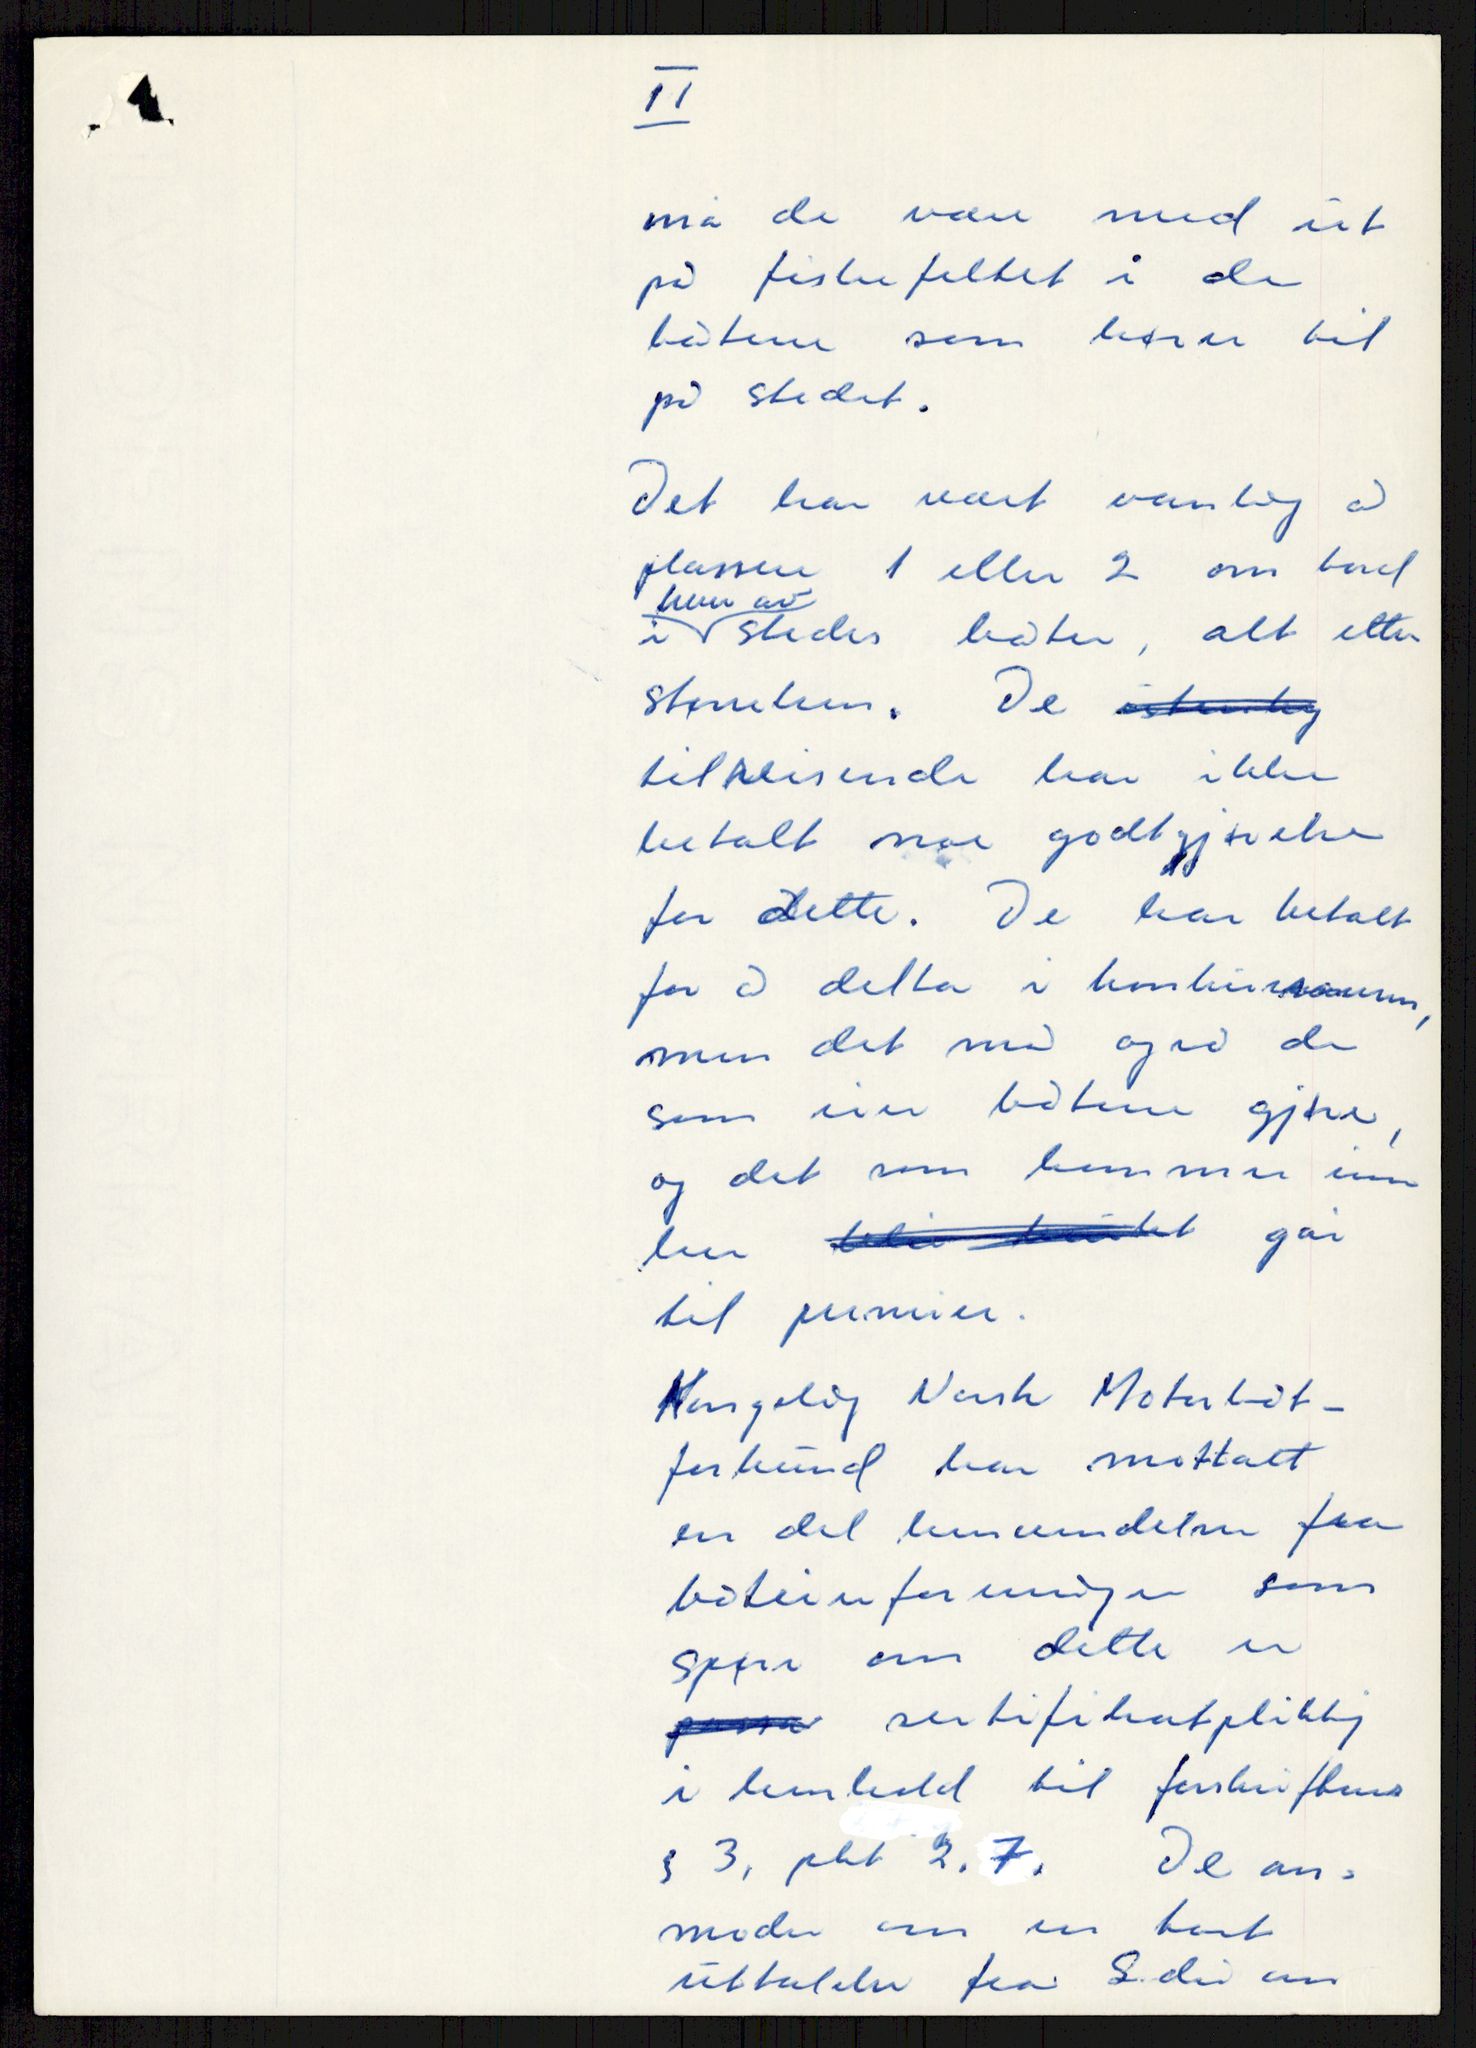 II
må de være med ut
på fiskefeltet i de
båtene som hører til
på stedet.
Det har vært vanlig å
plassere 1 eller 2 om bord
hver av
i stedes båter, alt etter
størrelsen. De
tilreisende har ikke
betalt noe godtgjørelse
for dette. De har betalt
for å delta i konkurransen,
men det må også de
som eier båtene gjøre,
og det som kommer inn
her går
til premier.
Kongelig Norsk Motorbåt-
forbund har mottatt
en del henvendelser fra
båteierforeninger som
spør om dette er
sertifikatpliktig
i henhold til forskriftens
§ 3, pkt 2.7. De an-
moder om en kort
uttalelse fra S.dir om